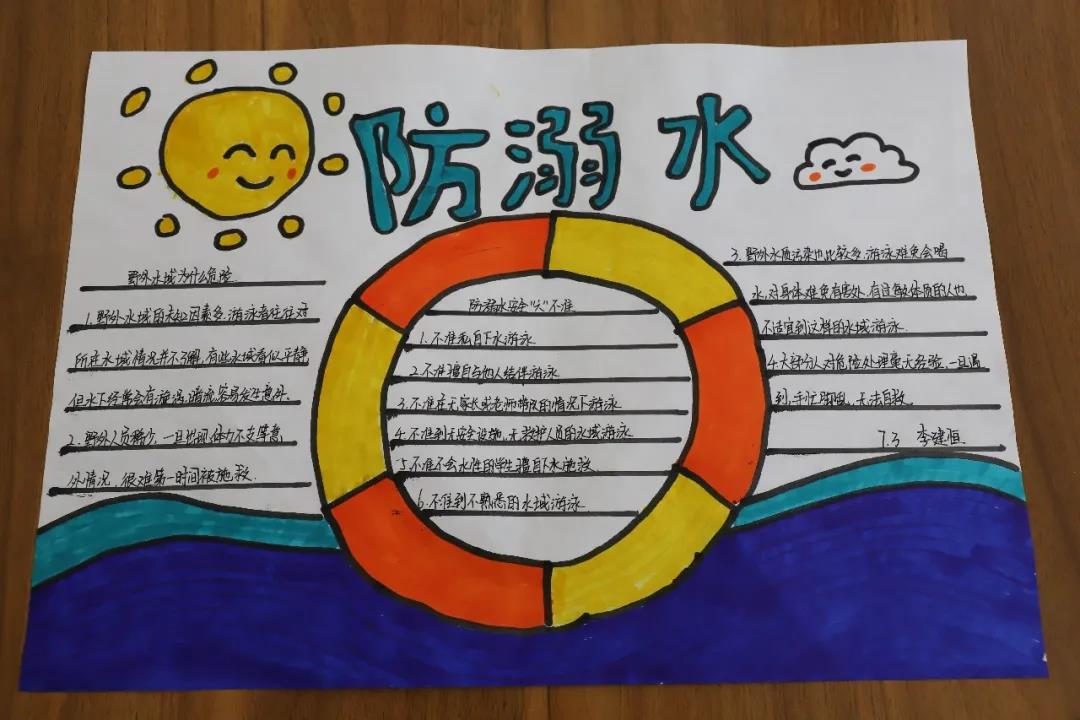 防溺水
野外水域为什么危险
1.野外水域的未知因素多,游泳者往往对
所在水域情况并不了解,有些水域看似平静
但水下经常会有漩涡、暗流,容易发生意外.
2.野外人员稀少,一旦出现体力不支等意
外情况,很难第一时间被施救.
防溺水安全"六"不准
1.不准私自下水游泳
2.不准擅自与他人结伴游泳
3.不准在无家长或老师带领的情况下游泳
4.不准到无安全设施、无救护人员的水域游泳
5.不准不会水性的学生擅自下水施救
6.不准到不熟悉的水域游泳
3.野外水质污染也比较多,游泳难免会喝
水,对身体难免有害处,有过敏体质的人也
不适宜到这样的水域游泳
4.大部分人对危险处理毫无经验,一旦遇
到,手忙脚乱,无法自救.
7.3 李建恒